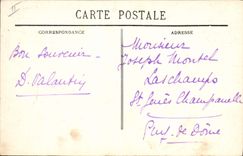 II
CARTE POSTALE
CORRESPONDANCE
ADRESSE
Bon Souvenir
D. Valentin
Monsieur
Joseph Montel
Laschamps
St Genès Champanelle
Puy-de-Dôme